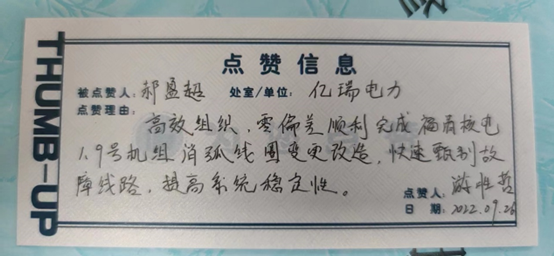 THUMB-UP
点赞信息
被点赞人: 郝盈超 处室/单位: 亿瑞电力
点赞理由:
高效组织,零偏差顺利完成福清核电
1.9号机组消弧线圈变更改造,快速甄别故
障线路,提高系统稳定性。
点赞人: 游胜哲
日期: 2022.09.26